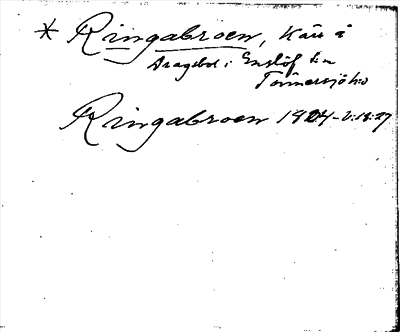 * Ringabroen, Kärr å
Aragebol i Enslöf sn
Tönnersjö hd
Ringabroen 1924-2:18:27